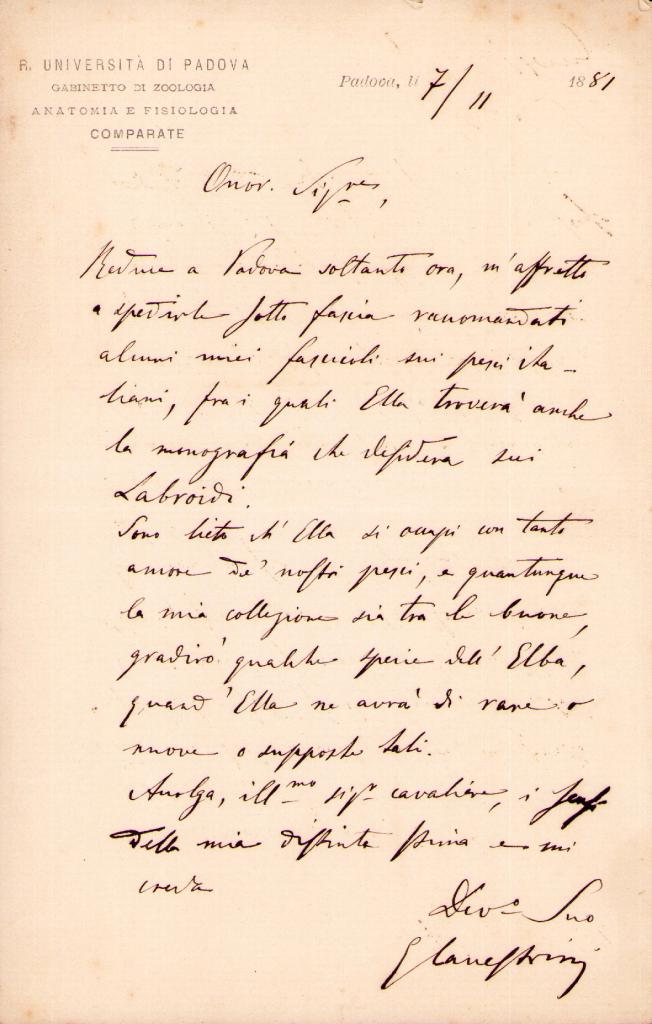 R. UNIVERSITÀ DI PADOVA
GABINETTO DI ZOOLOGIA
ANATOMIA E FISIOLOGIA
COMPARATE
Padova, li 7/11 1881
Onor. Sig.re,
Reduce a Padova soltanto ora, m'affretto
a spedirle sotto fascia raccomandati
alcuni miei fascicoli sui pesci ita-
liani, fra i quali Ella troverà anche
la monografia che desidera sui
Labroidi.
Sono lieto ch'Ella si occupi con tanto
amore de' nostri pesci, e quantunque
la mia collezione sia tra le buone,
gradirò qualche specie dell'Elba,
quand'Ella ne avrà di rare o
nuove o supposte tali.
Accolga, ill.mo sig.r cavaliere, i sensi
della mia distinta stima e mi
creda
Dev.o Suo
G Canestrini